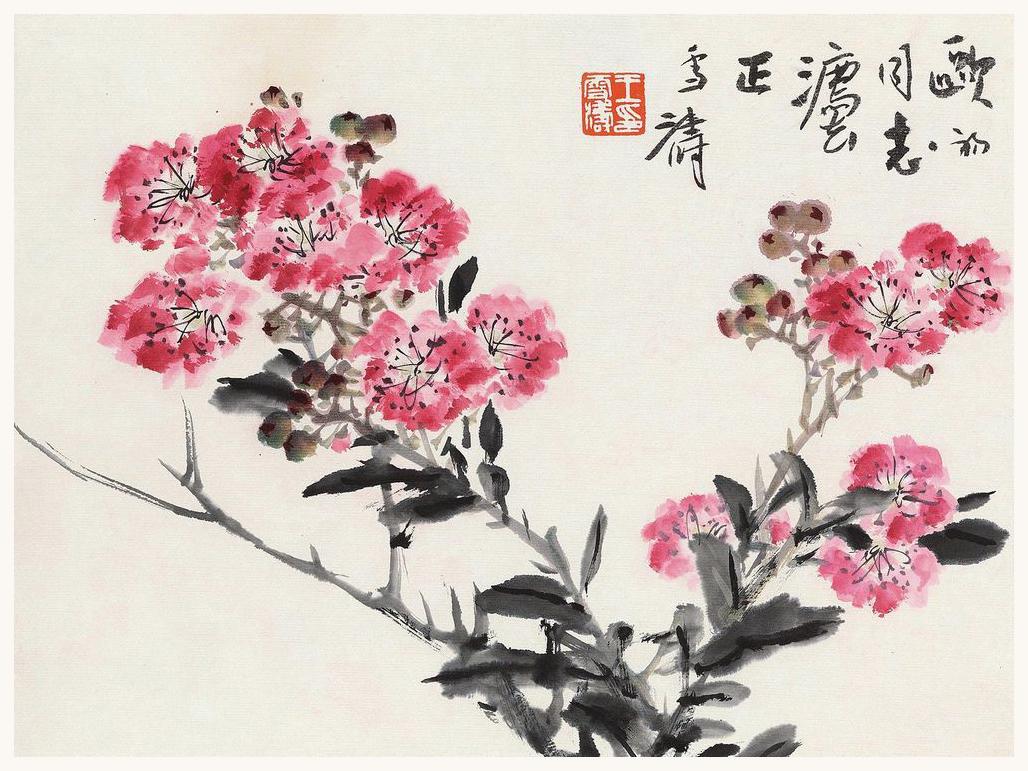 歐初
同志
灋
正
雪濤
王印
雪濤